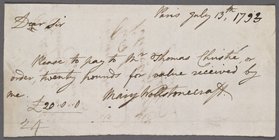 Paris July 13th 1793
Dear Sir
Please to pay to Mr. Thomas Christie or
order, twenty pounds for value received by
me.
£20 : 0 : 0 Mary Wollstonecraft